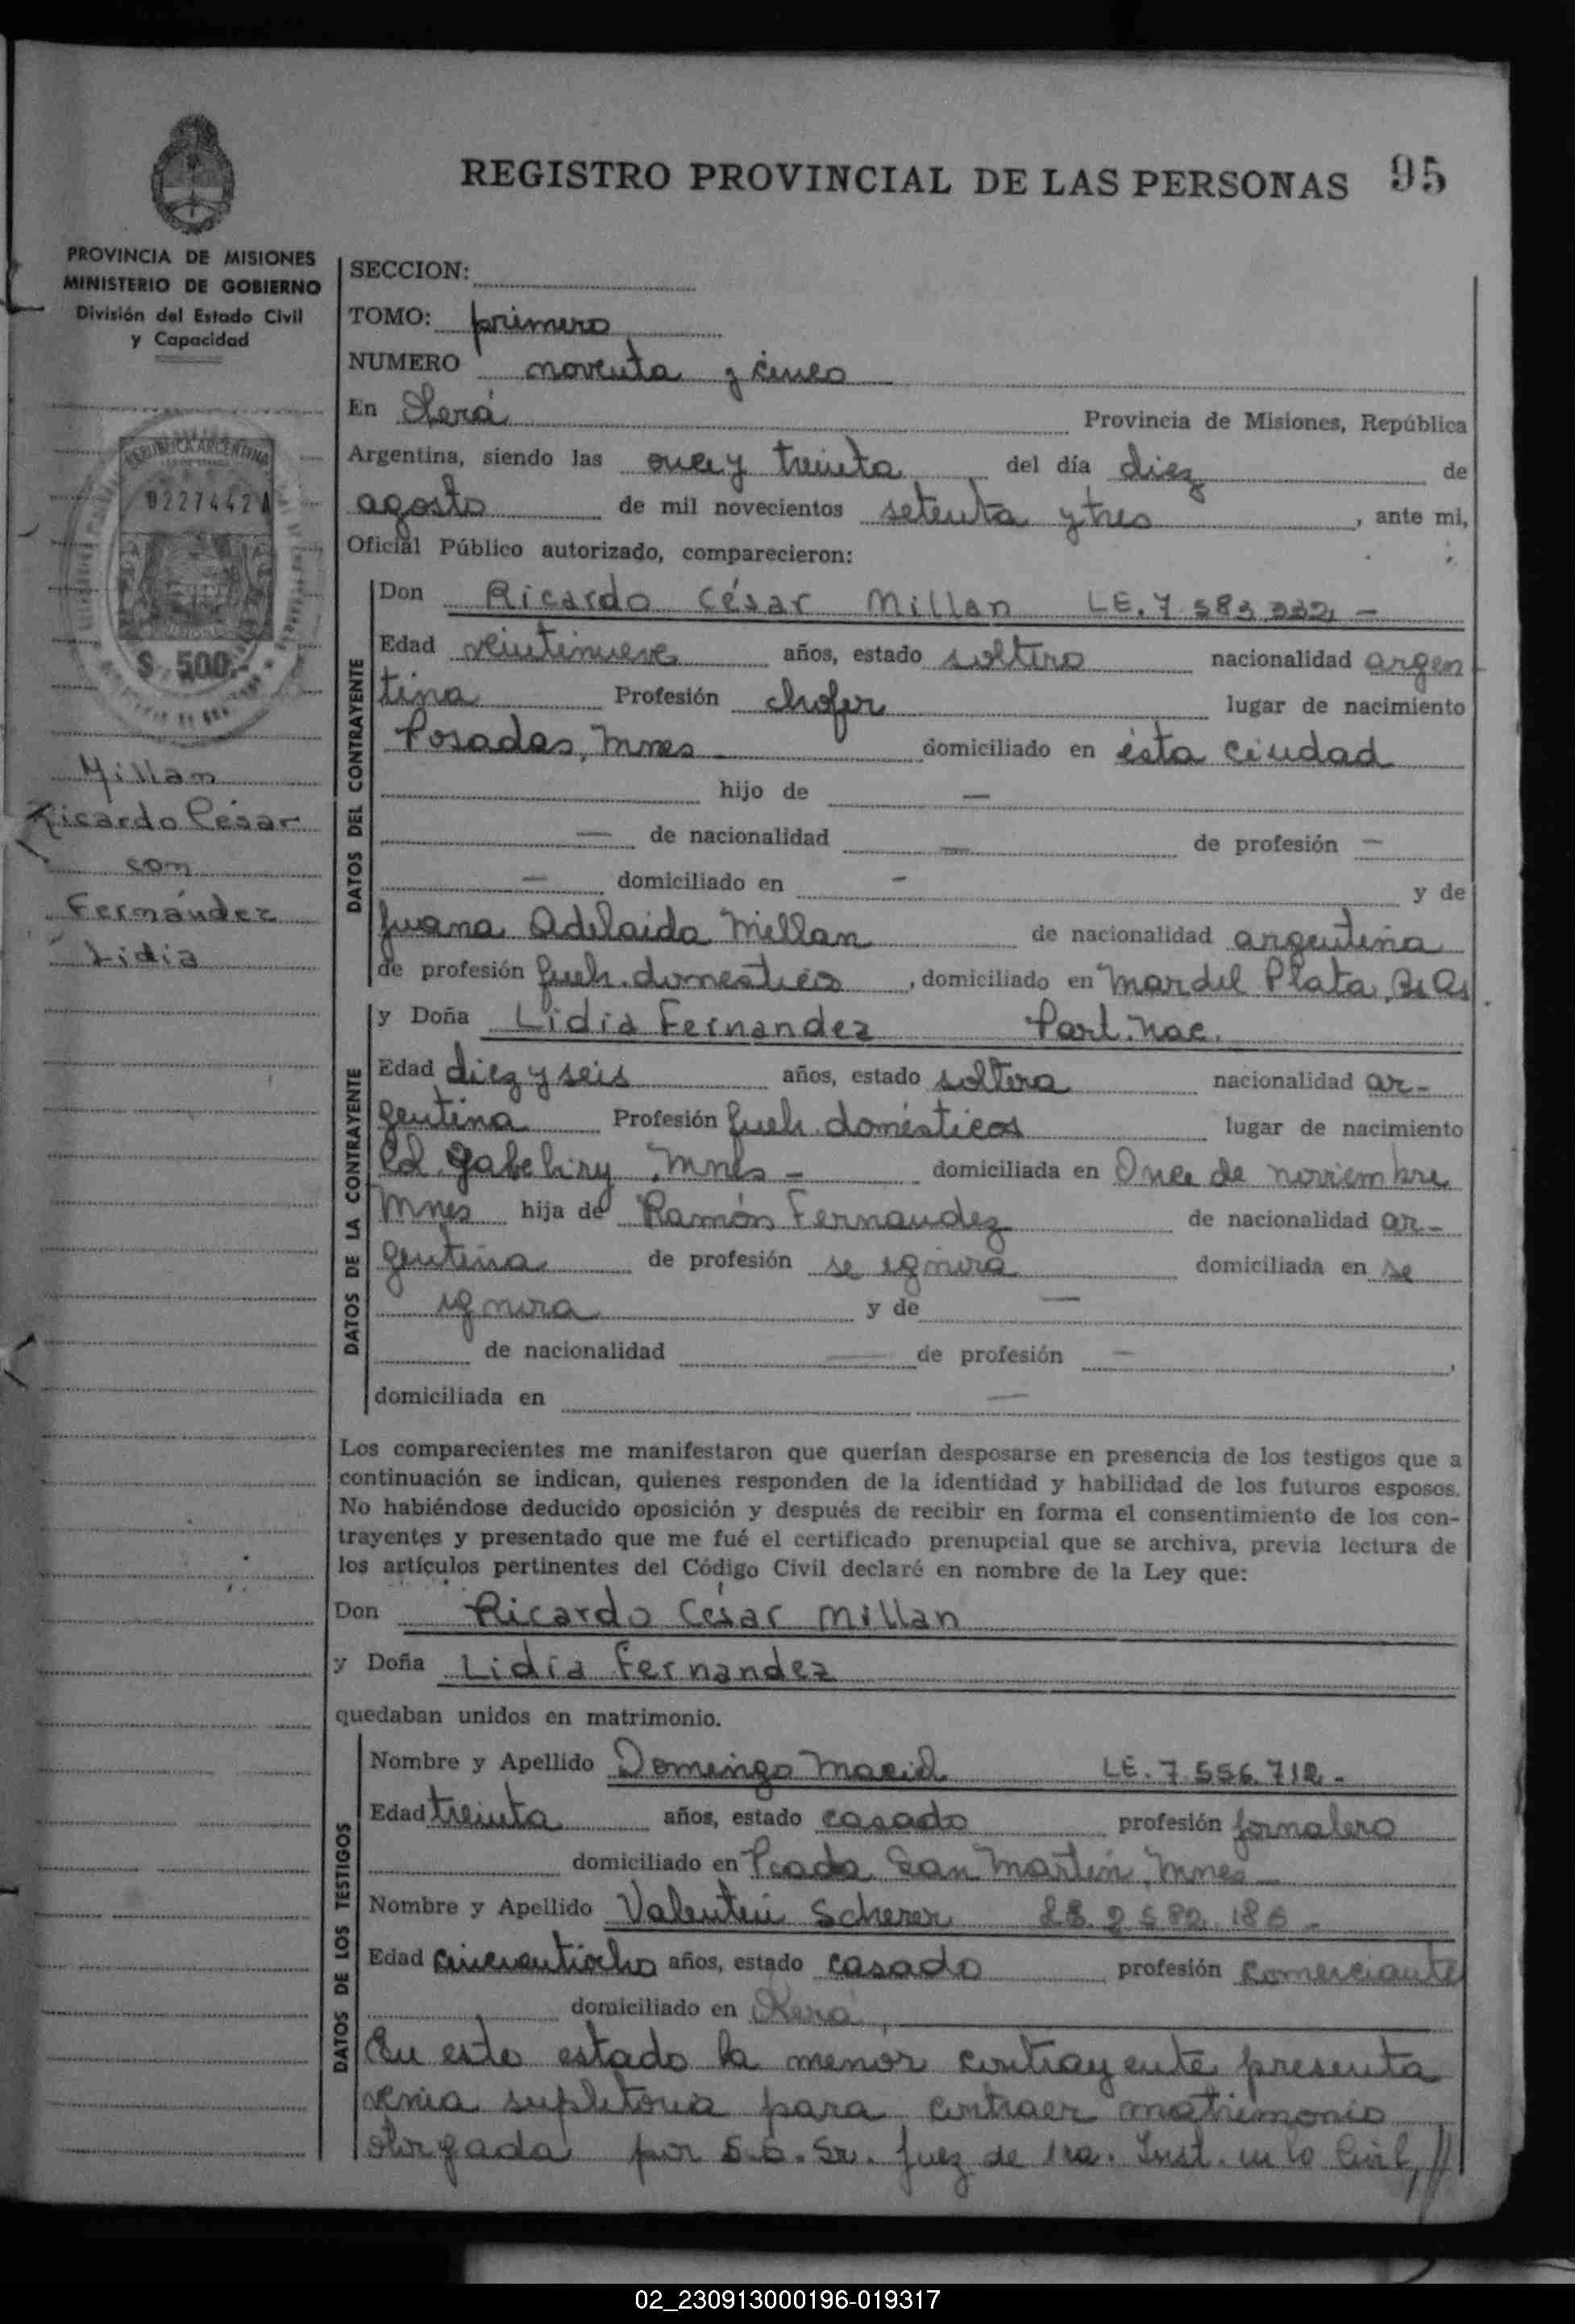 REGISTRO PROVINCIAL DE LAS PERSONAS 95
PROVINCIA DE MISIONES
MINISTERIO DE GOBIERNO
División del Estado Civil
y Capacidad
REPUBLICA ARGENTINA
0227442A
$ 500.-
Millan
Ricardo César
con
Fernández
Lidia
SECCION:
TOMO: primero
NUMERO noventa y cinco
En Oberá Provincia de Misiones, República
Argentina, siendo las once y treinta del día diez de
agosto de mil novecientos setenta y tres, ante mi,
Oficial Público autorizado, comparecieron:
DATOS DEL CONTRAYENTE
Don Ricardo César Millan LE. 7.583.332 -
Edad veintinueve años, estado soltero nacionalidad argen
tina Profesión chofer lugar de nacimiento
Posadas, Mnes domiciliado en ésta ciudad
hijo de —
— de nacionalidad — de profesión —
— domiciliado en — y de
Juana Adelaida Millan de nacionalidad argentina
de profesión queh. domesticos, domiciliado en Mar del Plata, Bs As.
DATOS DE LA CONTRAYENTE
y Doña Lidia Fernandez Part. Nac.
Edad diez y seis años, estado soltera nacionalidad ar-
gentina Profesión queh. domésticos lugar de nacimiento
Col. Mnes - domiciliada en Once de noviembre
Mnes hija de Ramón Fernandez de nacionalidad ar-
gentina de profesión se ignora domiciliada en se
ignora y de —
de nacionalidad — de profesión —,
domiciliada en —
Los comparecientes me manifestaron que querían desposarse en presencia de los testigos que a
continuación se indican, quienes responden de la identidad y habilidad de los futuros esposos.
No habiéndose deducido oposición y después de recibir en forma el consentimiento de los con-
trayentes y presentado que me fué el certificado prenupcial que se archiva, previa lectura de
los artículos pertinentes del Código Civil declaré en nombre de la Ley que:
Don Ricardo César Millan
y Doña Lidia Fernandez
quedaban unidos en matrimonio.
DATOS DE LOS TESTIGOS
Nombre y Apellido Domingo Maciel LE. 7.556.712 -
Edad treinta años, estado casado profesión jornalero
domiciliado en Pcada San Martin, Mnes
Nombre y Apellido Valentin Scherer
Edad cincuentiocho años, estado casado profesión comerciante
domiciliado en Oberá,
En este estado la menor contrayente presenta
venia supletoria para contraer matrimonio
otorgada por S.S. Sr. Juez de 1ra. Inst. en lo Civil, //
02_230913000196-019317